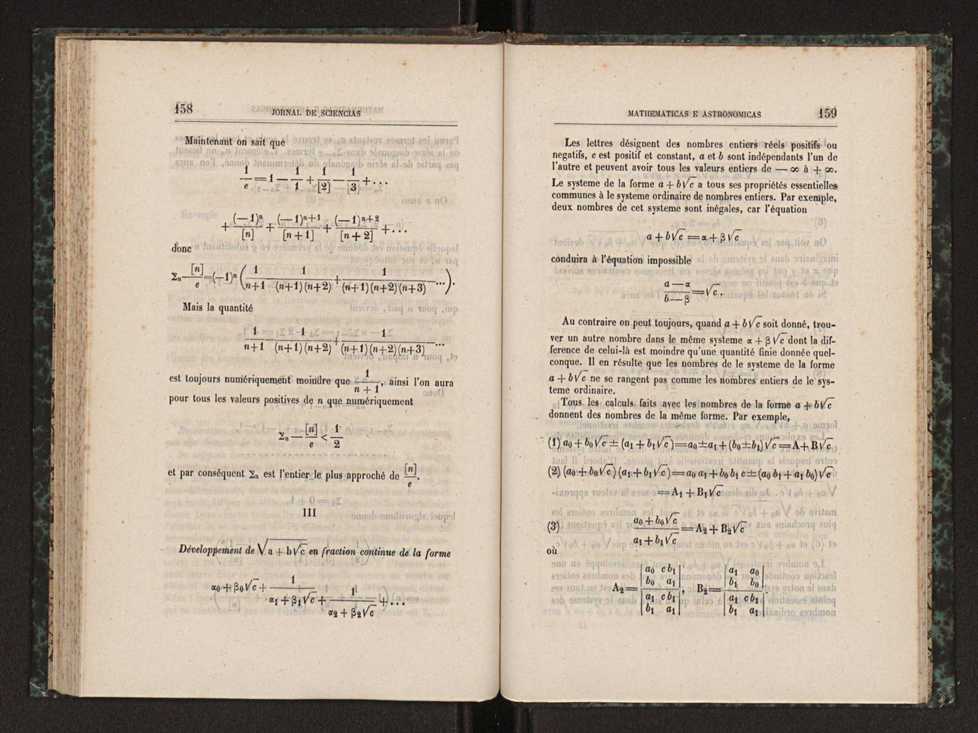 158
JORNAL DE SCIENCIAS
Maintenant on sait que
1/e = 1 — 1/1 + 1/[2] — 1/[3] + ...
+ (—1)ⁿ/[n] + (—1)ⁿ⁺¹/[n+1] + (—1)ⁿ⁺²/[n+2] + ...
donc
Σₙ — [n]/e = (—1)ⁿ ( 1/(n+1) — 1/((n+1)(n+2)) + 1/((n+1)(n+2)(n+3)) ... ).
Mais la quantité
1/(n+1) — 1/((n+1)(n+2)) + 1/((n+1)(n+2)(n+3)) ...
est toujours numériquement moindre que 1/(n+1), ainsi l'on aura
pour tous les valeurs positives de n que numériquement
Σₙ — [n]/e < 1/2
et par conséquent Σₙ est l'entier le plus approché de [n]/e.
III
Développement de √(a + b√c) en fraction continue de la forme
α₀ + β₀√c + 1/(α₁ + β₁√c + 1/(α₂ + β₂√c + ...
MATHEMATICAS E ASTRONOMICAS
159
Les lettres désignent des nombres entiers réels positifs ou
negatifs, c est positif et constant, a et b sont indépendants l'un de
l'autre et peuvent avoir tous les valeurs entiers de — ∞ à + ∞.
Le systeme de la forme a + b√c a tous ses propriétés essentielles
communes à le systeme ordinaire de nombres entiers. Par exemple,
deux nombres de cet systeme sont inégales, car l'équation
a + b√c = α + β√c
conduira à l'équation impossible
(a — α)/(b — β) = √c.
Au contraire on peut toujours, quand a + b√c soit donné, trou-
ver un autre nombre dans le même systeme α + β√c dont la dif-
ference de celui-là est moindre qu'une quantité finie donnée quel-
conque. Il en résulte que les nombres de le systeme de la forme
a + b√c ne se rangent pas comme les nombres entiers de le sys-
teme ordinaire.
Tous les calculs faits avec les nombres de la forme a + b√c
donnent des nombres de la même forme. Par exemple,
(1) a₀ + b₀√c ± (a₁ + b₁√c) = a₀ ± a₁ + (b₀ ± b₁)√c = A + B√c
(2) (a₀ + b₀√c) (a₁ + b₁√c) = a₀ a₁ + b₀ b₁ c ± (a₀ b₁ + a₁ b₀)√c
= A₁ + B₁√c
(3) (a₀ + b₀√c)/(a₁ + b₁√c) = A₂ + B₂√c
où
A₂ = |a₀ cb₁; b₀ a₁| / |a₁ cb₁; b₁ a₁|, B₂ = |a₁ a₀; b₁ b₀| / |a₁ cb₁; b₁ a₁|.